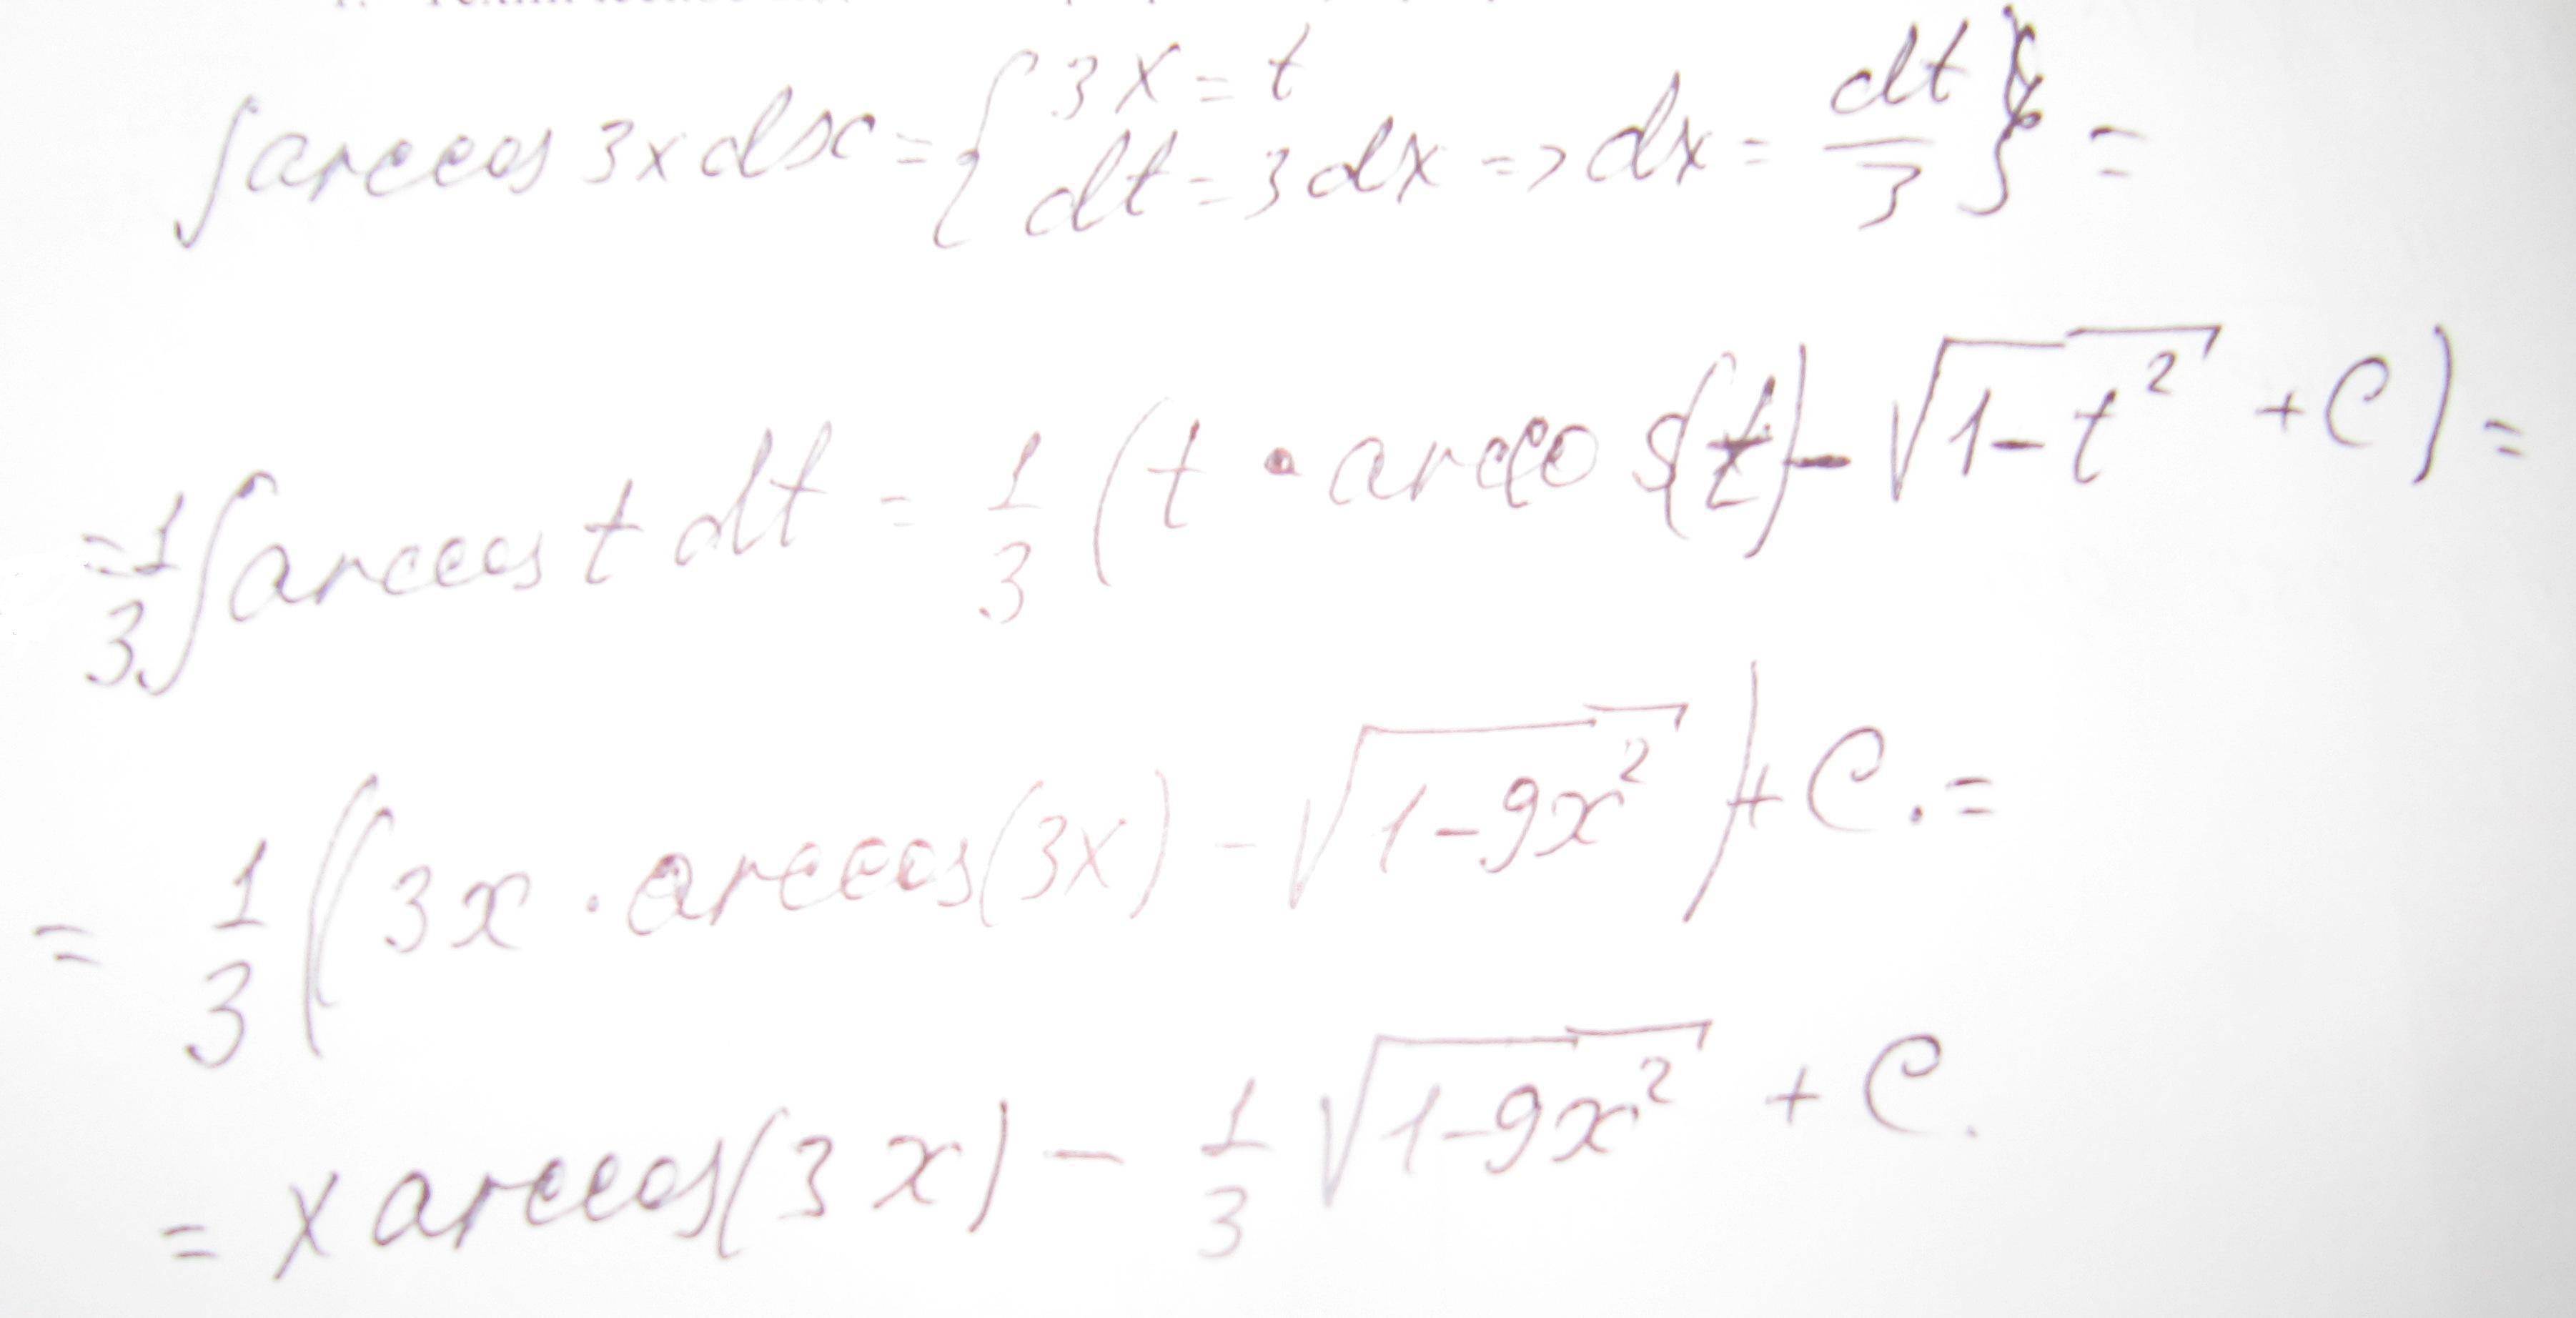 ∫ arccos 3x dx = { 3x = t
dt = 3dx => dx = dt/3 } =
= 1/3 ∫ arccos t dt = 1/3 (t · arccos(t) - √(1-t²) + C) =
= 1/3 (3x · arccos(3x) - √(1-9x²)) + C. =
= x arccos(3x) - 1/3 √(1-9x²) + C.